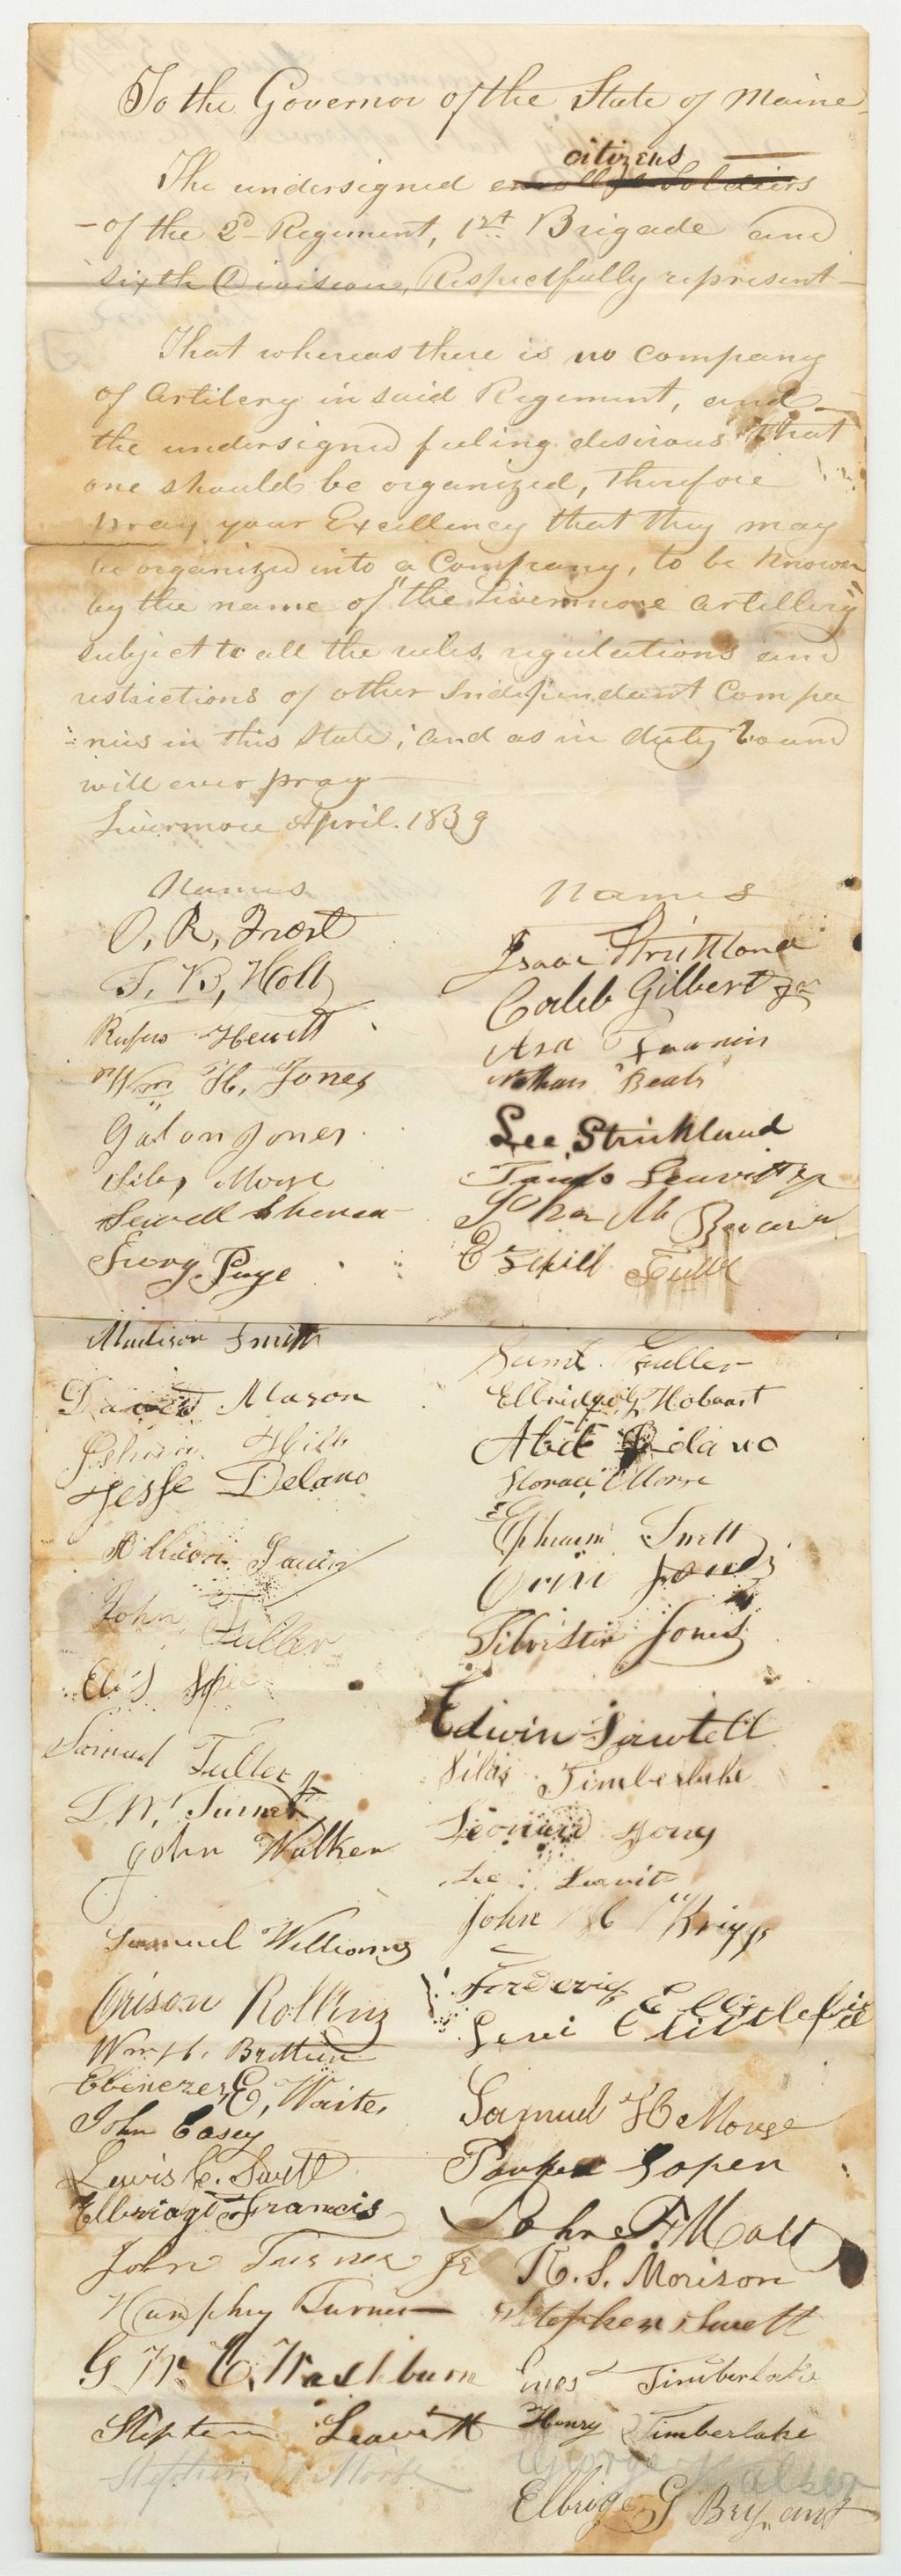 To the Governor of the State of Maine
citizens
The undersigned enrolled Soldiers
of the 2d Regiment, 1st Brigade and
sixth Division, Respectfully represent
That whereas there is no company
of Artilery in said Regiment, and
the undersigned feeling desirous that
one should be organized, therefore
pray your Excellency that they may
be organized into a Company, to be known
by the name of "the Livermore Artillery"
subject to all the rules, regulations and
restrictions of other Independant Compa
nies in this State; and as in duty bound
will ever pray
Livermore April. 1839
Names
O, R, Frost
T, B, Holt
Rufus Hewitt
Wm H, Jones
Galon Jones
Silas Morse
Sewell
Page
Madison Smith
David Mason
Hill
Jesse Delano
John Fuller
Samuel Fuller
Turner
John Walker
Samuel Williams
Orison Rollins
Wm H. Brettun
Ebenezer E, Waite,
John Casey
Lewis C. Swett
Elbridge Francis
John Turner Jr
Humphry Turner
G W. C. Washburn
Stephen Leavitt
Names
Isaac Strickland
Caleb Gilbert Jr
Asa Francis
Nathan Beals
Lee Strickland
Leavitt Jr
Saml. Fuller
Elbridge G Hobart
Delano
Horace Morse
Ephraim Swett
Orin Jones
Silvester Jones
Edwin Sawtell
Silas Timberlake
Leonard
Lee Leavitt
John
Levi Littlefield
Samuel H Morse
Parker Soper
John F
H. S. Morison
Stephen Swett
Timberlake
Henry Timberlake
George
Elbrige G Bryant